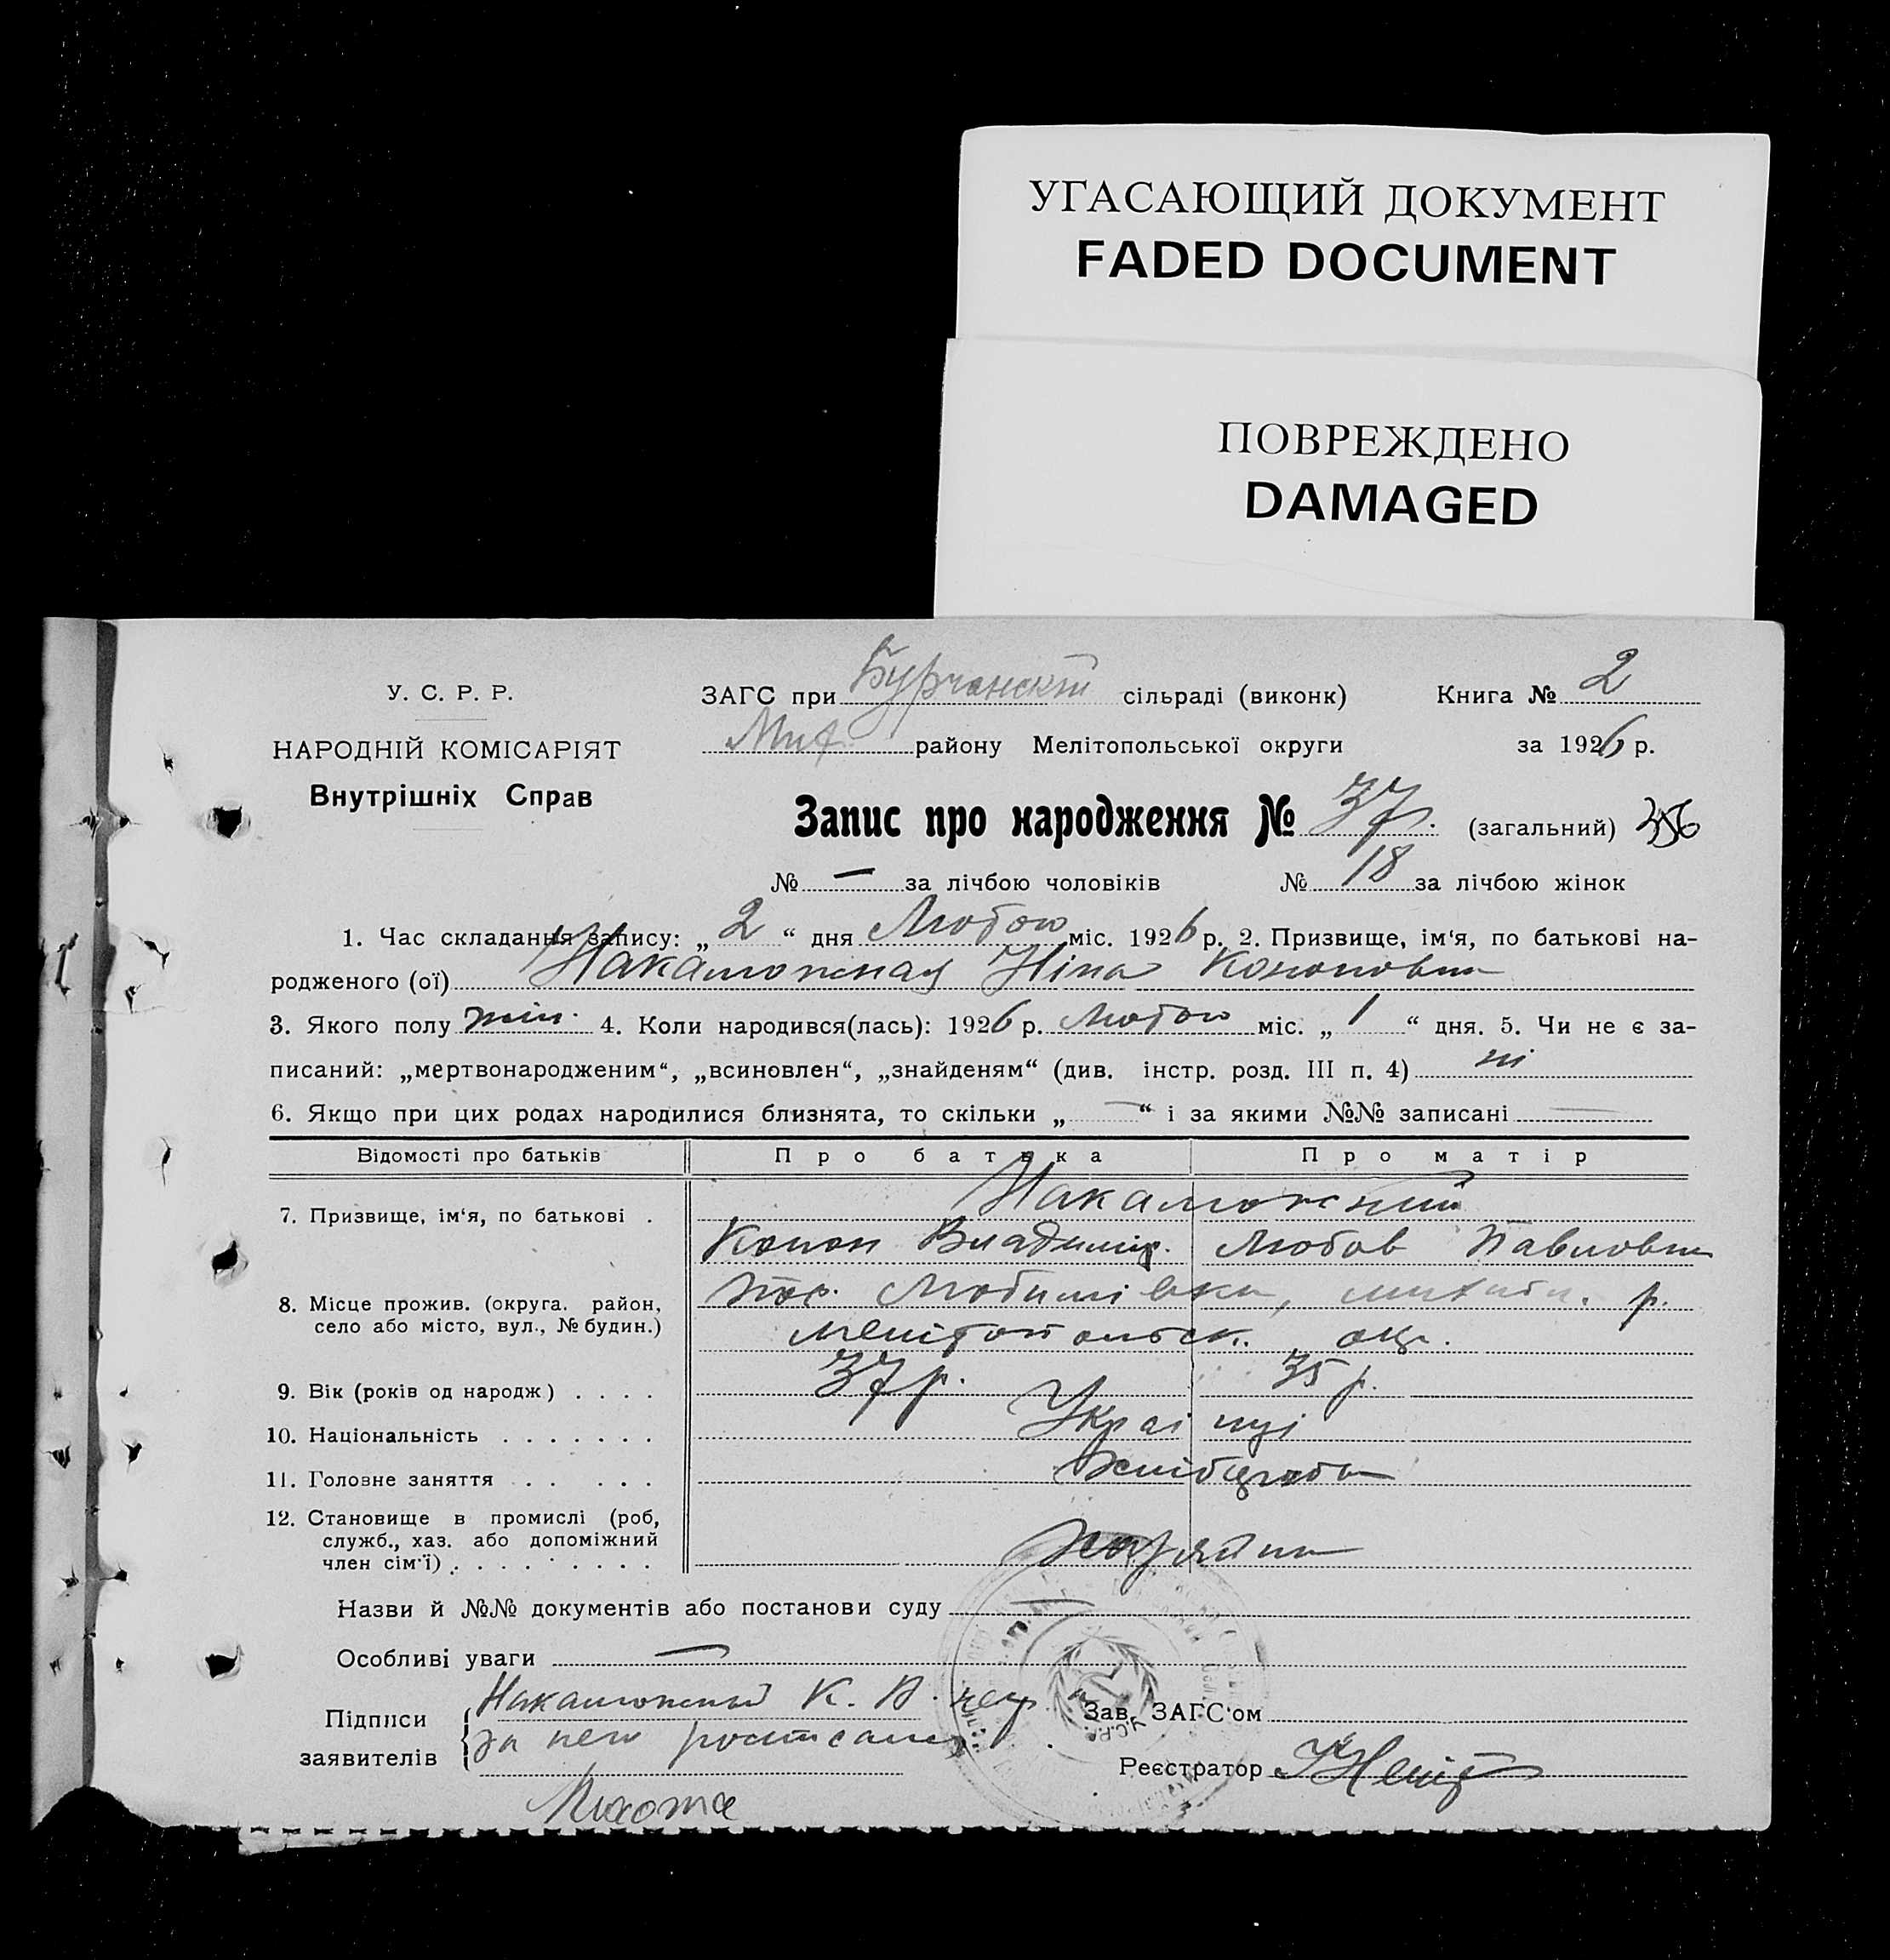 УГАСАЮЩИЙ ДОКУМЕНТ
FADED DOCUMENT
ПОВРЕЖДЕНО
DAMAGED
У. С. Р. Р.
НАРОДНІЙ КОМІСАРІЯТ
Внутрішніх Справ
ЗАГС при Бурчанскій сільраді (виконк) Книга № 2
Мих района Мелітопольської округи за 1926 р.
Запис про народження № 37 (загальний)
№ — за лічбою чоловіків № 18 за лічбою жінок
1. Час складання запису: „2“ дня Лютого міс. 1926 р. 2. Призвище, ім'я, по батькові на-
родженого (ої) Ніна Кононовна
3. Якого полу жін. 4. Коли народився(лась): 1926 р. Лютого міс. „1“ дня. 5. Чи не є за-
писаний: „мертвонародженим“, „всиновлен“, „знайденям“ (див. інстр. розд. III п. 4) ні
6. Якщо при цих родах народилися близнята, то скільки „—“ і за якими №№ записані —
Відомості про батьків Про батька Про матір
7. Призвище, ім'я, по батькові .
Конон Владимир. Любов Павловна
8. Місце прожив. (округа. район,
село або місто, вул., № будин.)
пос. Любимівка, михайл. р.
мелітопольск. окр.
9. Вік (років од народж) . . . . 37 р. 35 р.
10. Національність . . . . . . . Українці
11. Головне заняття . . . . . Хлібороби
12. Становище в промислі (роб,
служб., хаз. або допоміжний
член сім'ї) . . . . . . . . .
Хазяїни
Назви й №№ документів або постанови суду —
Особливі уваги —
Підписи
заявителів
К. В. негр.
за него росписался
Зав. ЗАГС'ом
Реєстратор